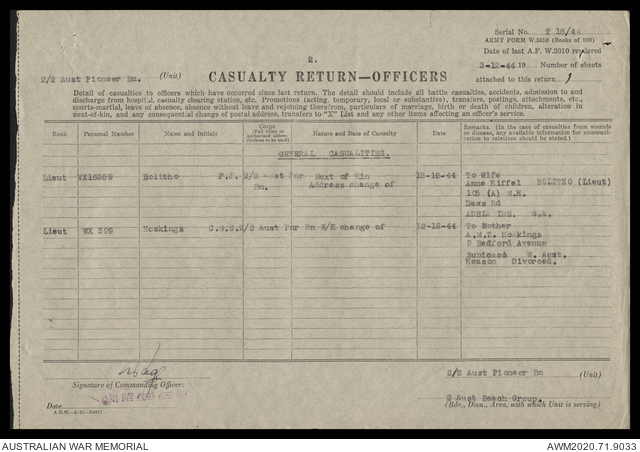 Serial No. T 18/44
ARMY FORM W.3010 (Books of 100)
Date of last A.F. W.3010 rendered
2.
3-12-44 19 Number of sheets
2/2 Aust Pioneer Bn. (Unit)
CASUALTY RETURN—OFFICERS
attached to this return 1
Detail of casualties to officers which have occurred since last return. The detail should include all battle casualties, accidents, admission to and
discharge from hospital, casualty clearing station, etc. Promotions (acting, temporary, local or substantive), transfers, postings, attachments, etc.,
courts-martial, leave of absence, absence without leave and rejoining therefrom, particulars of marriage, birth or death of children, alteration in
next-of-kin, and any consequent change of postal address, transfers to "X" List and any other items affecting an officer's service.
Rank Personal Number Name and Initials Corps (Full titles or authorised abbreviations to be used) Nature and Date of Casualty Date Remarks. (In the case of casualties from wounds or disease, any available information for communication to relatives should be stated.)
GENERAL CASUALITIES.
Lieut VX16369 Bolitho F.J. 2/2 Aust Pnr Next of Kin 12-12-44 To Wife
Bn. Address change of Anne Eiffel BOLITHO (Lieut)
105 (A) M.H.
Daws Rd
ADELAIDE. S.A.
Lieut WX 399 Hoskings C.O.S. 2/2 Aust Pnr Bn N/K change of 12-12-44 To Mother
A.M.T. Hoskings
9 Bedford Avenue
Subicaco W. Aust.
Reason Divorced.
2/2 Aust Pioneer Bn (Unit)
Signature of Commanding Officer:
2 Aust Beach Group.
Date
(Bde., Divn., Area, with which Unit is serving)
AUSTRALIAN WAR MEMORIAL
AWM2020.71.9033